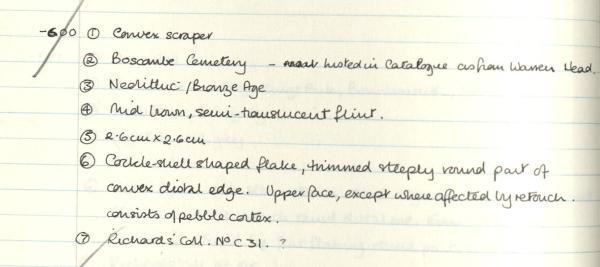 -600 ① Convex scraper
② Boscombe Cemetery - listed in Catalogue as from Warren Head.
③ Neolithic / Bronze Age
④ Mid brown, semi-translucent flint.
⑤ 2.6cm x 2.6cm
⑥ Cockle-shell shaped flake, trimmed steeply round part of
convex distal edge. Upper face, except where affected by retouch.
consists of pebble cortex.
⑦ Richards' Coll. No C 31. ?